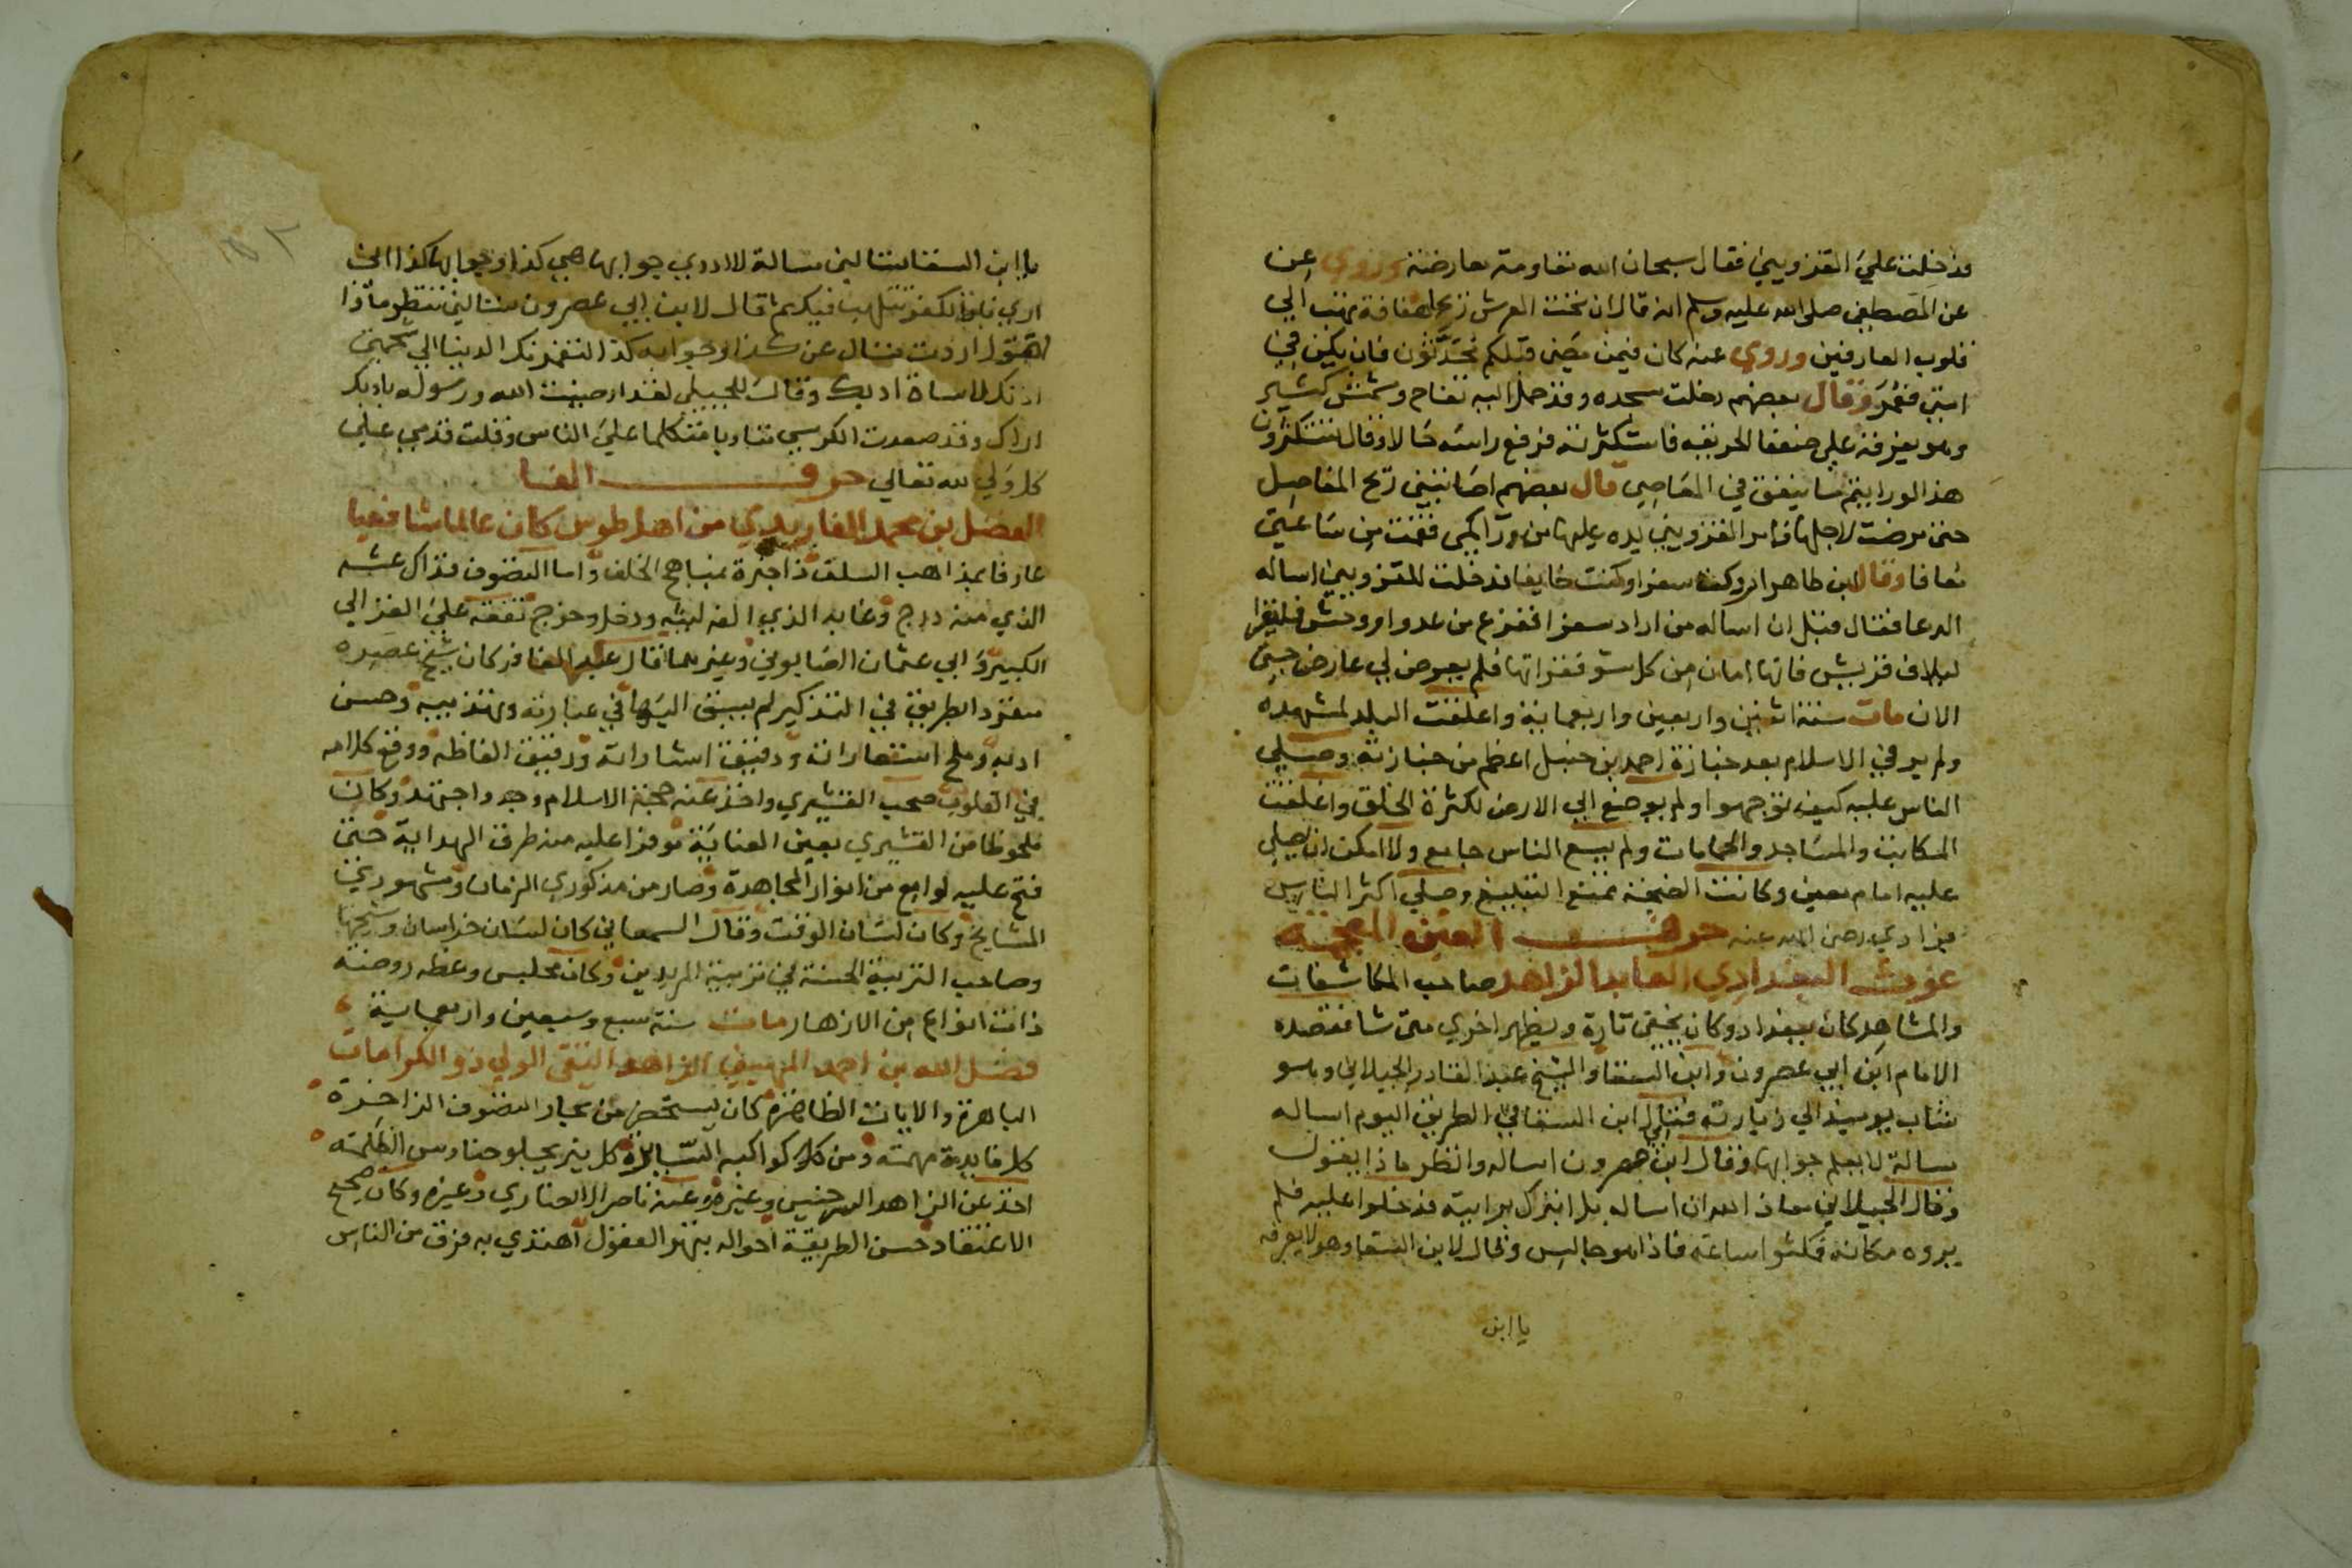 فدخلت علي القزويني فقال سبحان الله مقاومة معارضة وروي عن
عن المصطفي صلى الله عليه وسلم انه قال ان تحت العرش ريحا هفافة تهب الي
قلوب العارفين وروي عنه كان فيمن مضي قبلكم محدثون فان يكن في
امتي فعمر وقال بعضهم دخلت مسجده وقد حمل اليه تفاح ومشمش كثير
وهو يفرقه علي ضعفا الحربية فاستكثرته فرفع راسه حالا وقال تستكثرون
هذا لو رايتم ما ينفق في المعاصي قال بعضهم اصابتني ريح المفاصل
حتى مرضت لاجلها فامر القزويني يده عليها من ورا كمي فقمت من ساعتي
معافا وقال ابن طاهر اردت سفرا وكنت خايفا فدخلت للقزويني اساله
الدعا فقال قبل ان اساله من اراد سفرا ففزع من عدو او وحش فليقرا
لايلاف قريش فانها امان من كل سو فقراتها فلم يعرض لي عارض حتى
الان مات سنة اثنين واربعين واربعماية واغلقت البلد لمشهده
ولم ير في الاسلام بعد جنازة احمد بن حنبل اعظم من جنازته وصلي
الناس عليه كيف توجهوا ولم يوضع الي الارض لكثرة الخلق واغلقت
المكاتب والمساجد والحمامات ولم يسع الناس جامع ولا امكن ان يصلي
عليه امام معين وكانت الضجة تمنع التبليغ وصلي اكثر الناس
فرادي رضي الله عنه حرف الغين المعجمة
غوث البغدادي العابد الزاهد صاحب المكاشفات
والمشاهد كان ببغداد وكان يختفي تارة ويظهر اخري متى شا فقصده
الامام ابن ابي عصرون وابن السقا والشيخ عبد القادر الجيلاني وهو
شاب يوميذ الي زيارته فقال ابن السقا في الطريق اليوم اساله
مسالة لا يعلم جوابها وقال ابن عصرون اساله وانظر ماذا يقول
وقال الجيلاني معاذ الله ان اساله بل ابترك برايته فدخلوا عليه فلم
يروه مكانه فمكثوا ساعة فاذا هو جالس وقال لابن السقا وهو لا يعرفه
يا ابن
يا ابن السقا تسالني مسالة لا ادري جوابها هي كذا وجوابها كذا اني
اري نار الكفر تتلهب فيك ثم قال لابن ابي عصرون تسالني تنتظر ماذا
اقول اردت تسال عن كذا وجوابه كذا لتغمرنك الدنيا الي شحمتي
اذنك لاساة ادبك وقال للجيلي لقد ارضيت الله ورسوله بادبك
اراك وقد صعدت الكرسي متكلما علي الناس وقلت قدمي علي
كل ولي لله تعالي حرف الفا
الفضل بن محمد الفارمدي من اهل طوس كان عالما شافعيا
عارفا بمذاهب السلف ذا خبرة بمناهج الخلف واما التصوف فذاك عشه
الذي منه درج وغابه الذي الفه ليثه ودخل وخرج تفقه علي الغزالي
الكبير وابي عثمان الصابوني وغيرهما قال عبد الغافر كان شيخ عصره
منفرد الطريق في التذكير لم يسبق اليها في عبارته وتهذيبه وحسن
ادبه وملح استعاراته ودقيق اشاراته ورقيق الفاظه ووقع كلامه
في القلوب صحب القشيري واخذ عنه حجة الاسلام وجد واجتهد وكان
ملحوظا من القشيري بعين العناية موفرا عليه منه طرق الهداية حتى
فتح عليه لوامع من انوار المجاهدة وصار من مذكوري الزمان ومشهوري
المشايخ وكان لسان الوقت وقال السمعاني كان لسان خراسان وشيخها
وصاحب التربية الحسنة في تربية المريدين وكان مجلس وعظه روضة
ذات انواع من الازهار مات سنة سبع وسبعين واربعماية
فضل الله بن احمد المهيني الزاهد التقي الولي ذو الكرامات
الباهرة والايات الظاهرة كان يستخرج من بحار التصوف الزاخرة
كل فايدة مهمة ومن كل كواكبه السايرة كل نير يجلو حنادس الظلمة
اخذ عن الزاهد السرخسي وغيره وعنه ناصر الانصاري وغيره وكان صحيح
الاعتقاد حسن الطريقة احواله تبهر العقول اهتدي به فرق من الناس